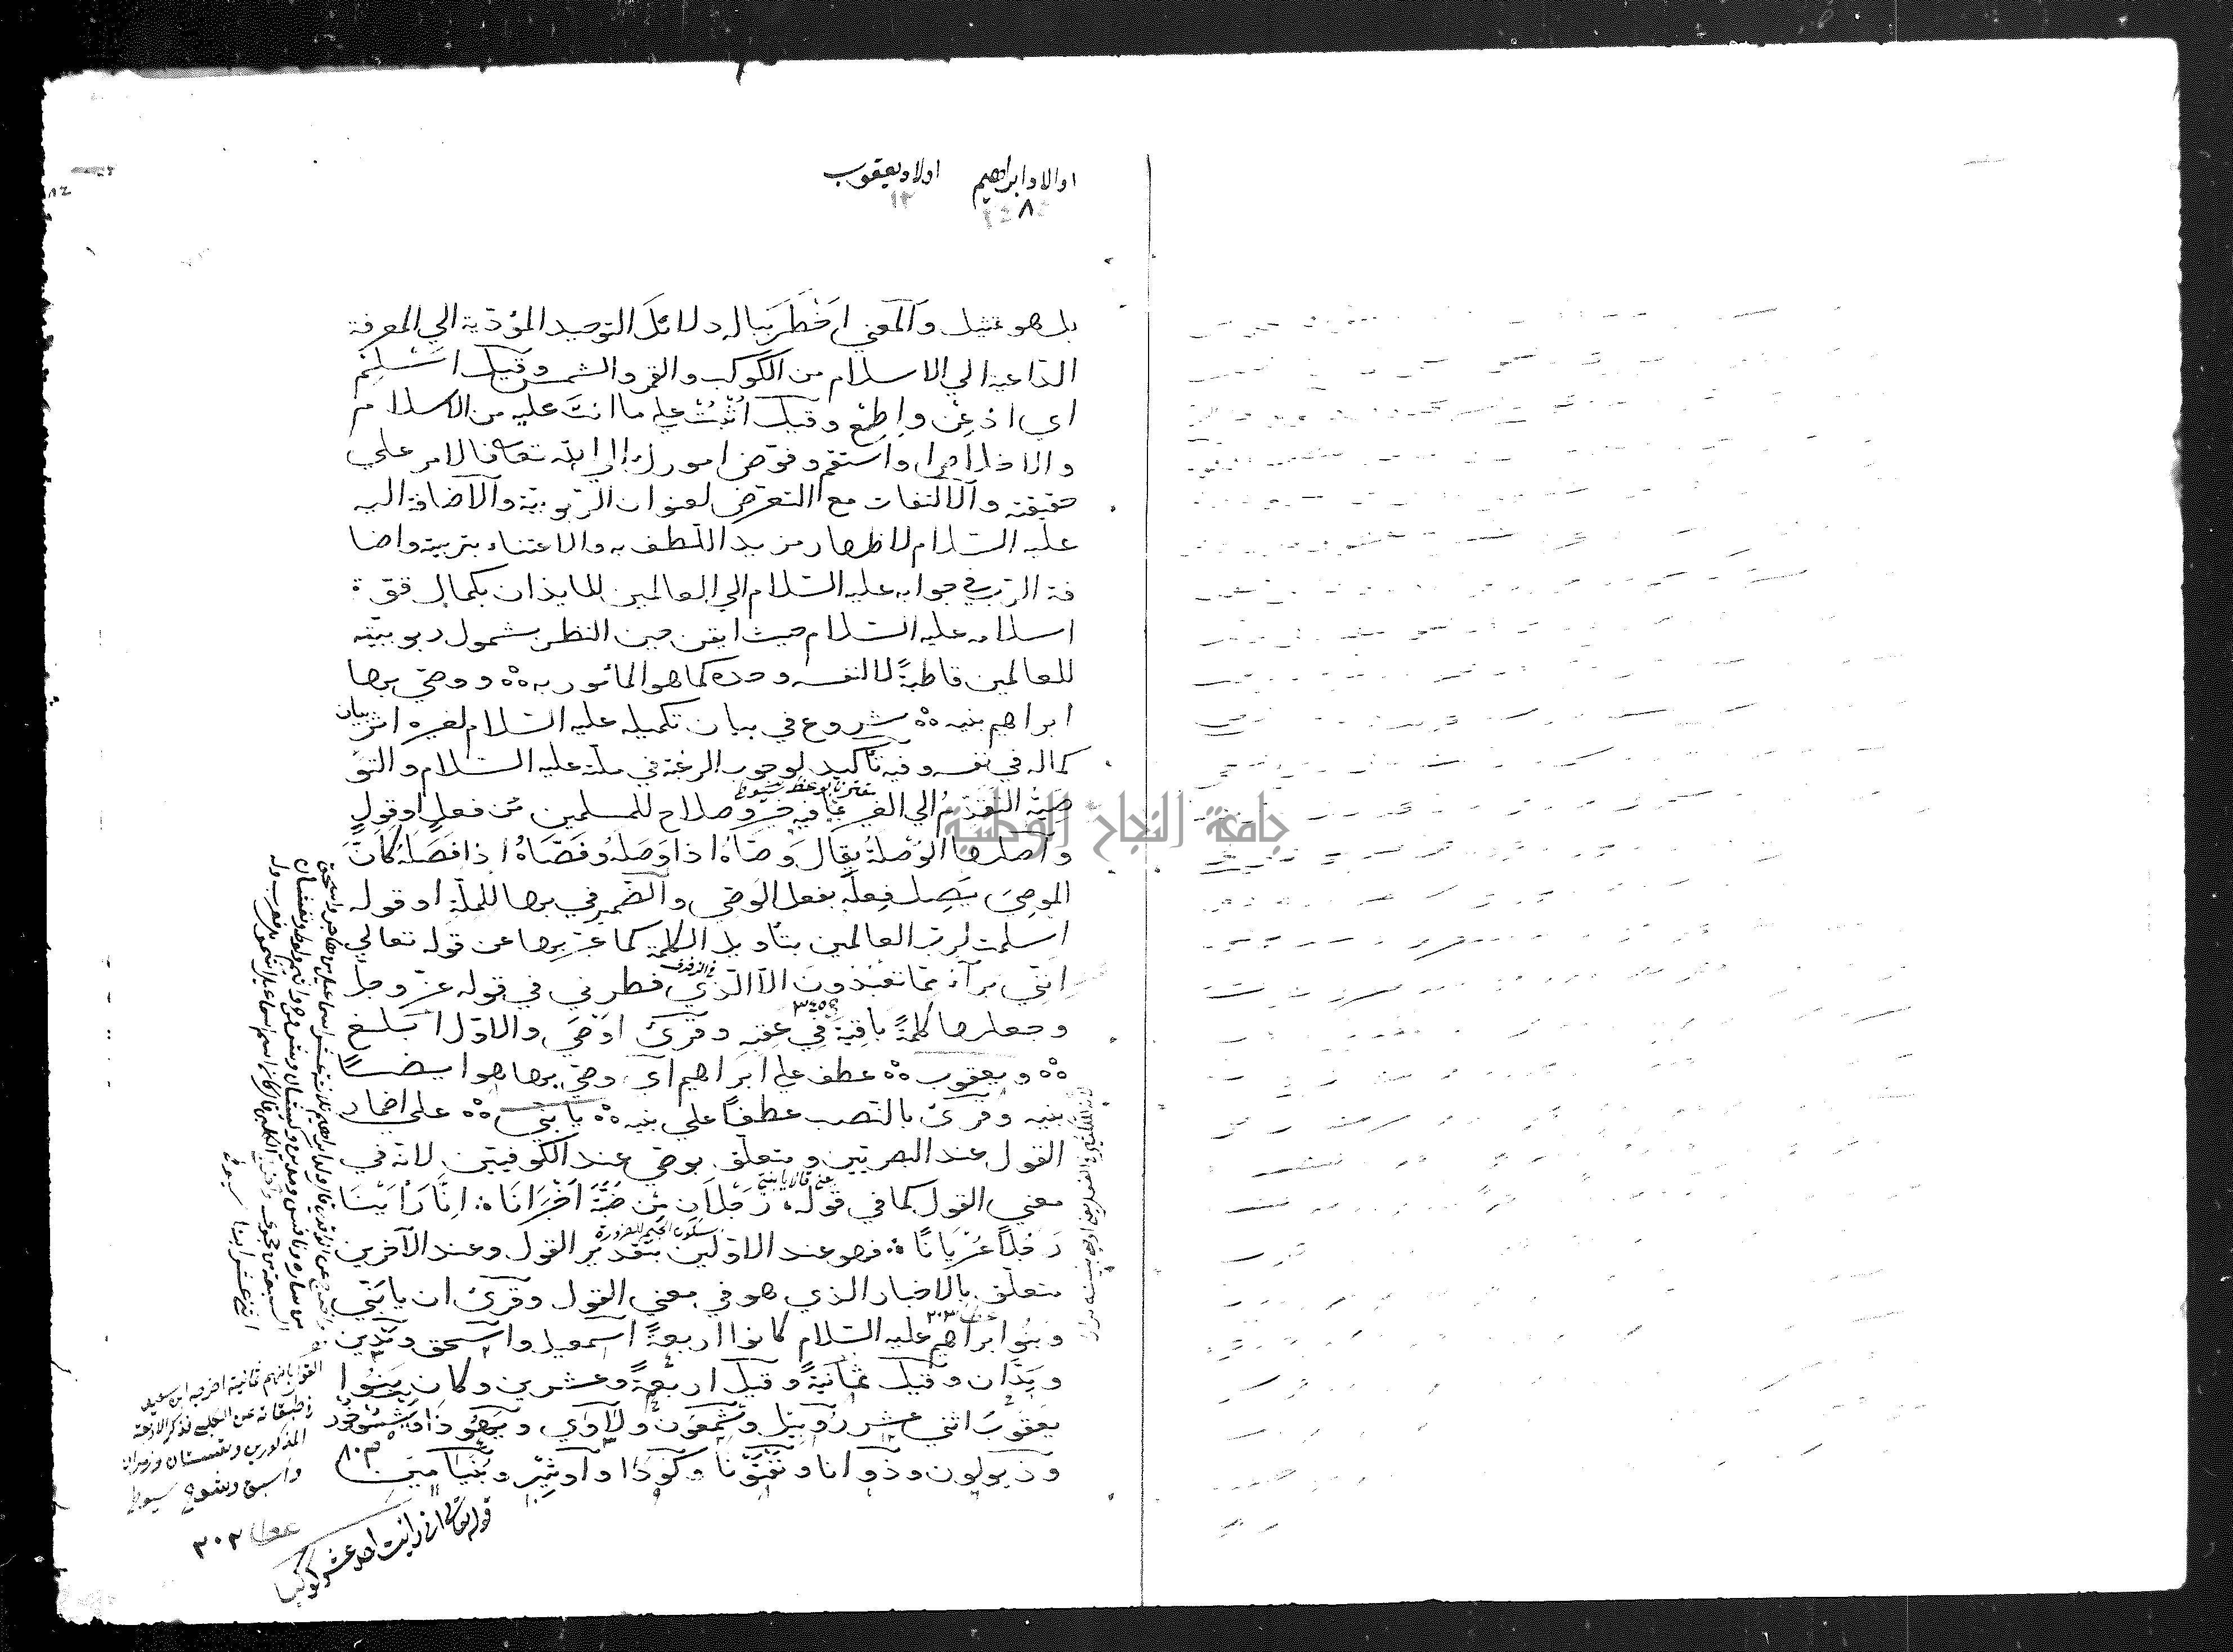 اوالاد ابراهيم اولاد يعقوب
٨ ١٢
بل هو تمثيل والمعني اخطر بباله دلائل التوحيد المؤدية الي المعرفة
الداعية الي الاسلام من الكوكب والقمر والشمس وقيل اسلم
اي اذعن واطع وقيل اثبت علي ما انت عليه من الاسلام
والاخلاص او استقم وفوض امورك الي الله تعا فالامر علي
حقيقته والالتفات مع التعرض لعنوان الربوبية والاضافة اليه
عليه السلام لاظهار مزيد اللطف به والاعتناء بتربيته واضا
فة الرب في جوابه عليه السلام الي العالمين للايذان بكمال قوة
اسلامه عليه السلام حيث ايقن حين النظر بشمول ربوبيته
للعالمين قاطبةً لا لنفسه وحده كما هو المأمور به ووصي بها
ابراهيم بنيه شروع في بيان تكميله عليه السلام لغيره اثر بيان
كماله في نفسه وفيه تأكيد لوجوب الرغبة في ملته عليه السلام والتو
صية التقدم الي الغير بما فيه خير وصلاح للمسلمين من فعل او قول
واصلها الوصلة يقال وصاه اذا وصله وفصاه اذا فصله كان
الموصي يصل فعله بفعل الوصي والضمير في بها للملة او قوله
اسلمت لرب العالمين بتأويل الكلمة كما عبر بها عن قوله تعالي
انني براء مما تعبدون الا الذي فطرني في قوله عز وجل
في الزخرف
وجعلها كلمةً باقيةً في عقبه وقرئ اوصي والاول ابلغ
ويعقوب عطف علي ابراهيم اي وصي بها هو ايضا
بنيه وقرئ بالنصب عطفاً علي بنيه يا بني علي اضمار
القول عند البصريين ومتعلق بوصي عند الكوفيين لانه في
معني القول كما في قوله رجلان من ضبة اخبرانا انا رأينا
رجلاً عريانا فهو عند الاولين بتقدير القول وعند الآخرين
سكون الجيم للضرورة
متعلق بالاخبار الذي هو في معني القول وقرئ ان يا بني
وبنو ابراهيم عليه السلام كانوا اربعة اسمعيل واسحق ومدين
ومدان وقيل ثمانيةً وقيل اربعةً وعشرين وكان بنوا
يعقوب اثني عشر روبيل وشمعون ولاوي ويهوذا ويشسوخور
وزبولون وذوانا ونفتونا وكوذا واوشير وبنيامين
قوله تعالي اني رايت احد عشر كوكبا
القول بانهم ثمانية اخرجه ابن سعيد
في طبقاته عن الكلبي فذكر الاربعة
المذكورين ويقشان وزمران
واسبق وشوح سيوطي
٣٠٢
جامعة النجاح الوطنية